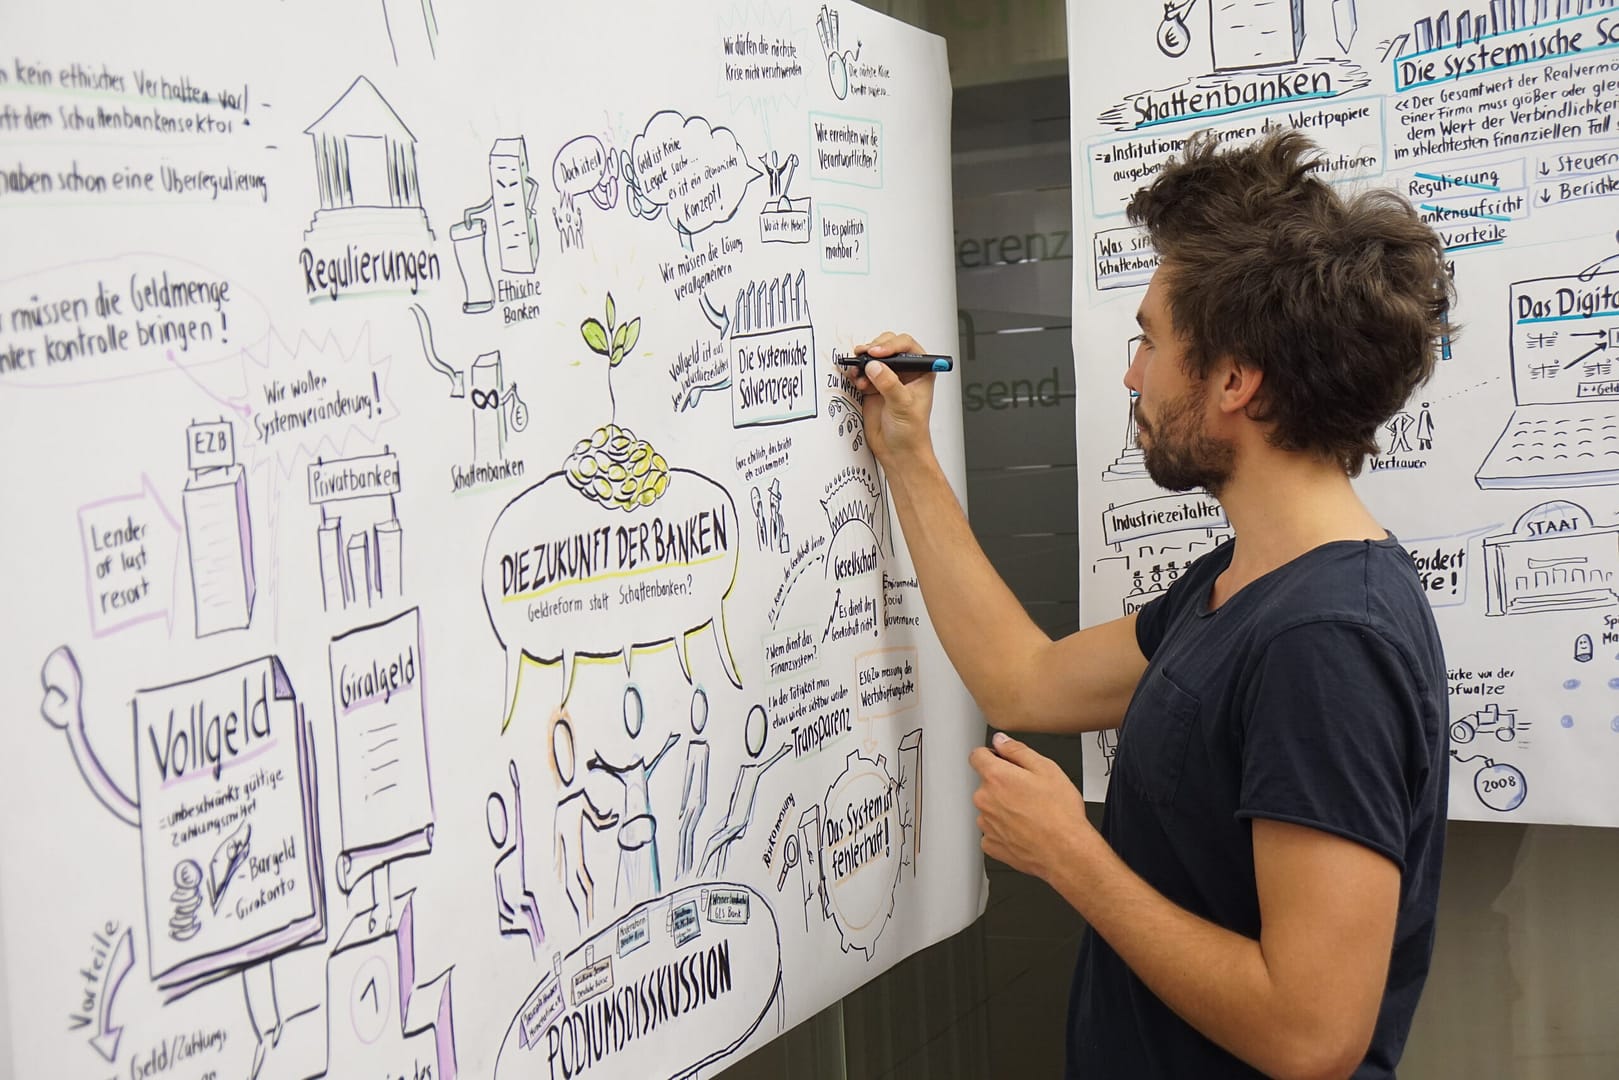 kein ethisches Verhalten vor!
den Schattenbankensektor
haben schon eine Überregulierung
müssen die Geldmenge
unter kontrolle bringen!
Wir wollen
Systemveränderung!
Regulierungen
Ethische
Banken
Schattenbanken
EZB
Privatbanken
Lender
of last
resort
Giralgeld
Vollgeld
=unbeschränkt gültige
Zahlungsmittel
- Bargeld
- Girokonto
Vorteile
Geld/Zahlungs
1
Wir dürfen die nächste
Krise nicht verschwenden
Die nächste Krise
kommt
Doch ist es!
Geld ist keine
es ist ein
Konzept!
Wie erreichen wir die
Verantwortlichen?
Wo ist der Hebel?
Ist es politisch
machbar?
Wir müssen die Lösung
verallgemeinern
Vollgeld ist aus
dem Industriezeitalter
Die Systemische
Solvenzregel
Ganz ehrlich, das bricht
eh zusammen!
DIE ZUKUNFT DER BANKEN
Geldreform statt Schattenbanken?
Gesellschaft
Es dient der
Gesellschaft nicht!
Environmental
Social
Governance
? Wem dient das
Finanzsystem?
! In der Tätigkeit muss
etwas wieder sichtbar werden
Transparenz
ESG Zur messung der
Wertschöpfungskette
Das System ist
fehlerhaft!
GLS Bank
PODIUMSDISSKUSSION
Schattenbanken
Institutionen
Firmen die Wertpapiere
ausgeben
Was sin
Schattenbank
Die systemische So
«Der Gesamtwert der Realvermö
einer Firma muss größer oder glei
dem Wert der Verbindlichkei
im schlechtesten finanziellen Fall s
Regulierung
ankenaufsicht
Vorteile
↓ Steuern
↓ Berichte
Das Digita
Vertrauen
Industriezeitalter
STAAT
fordert
fe!
2008